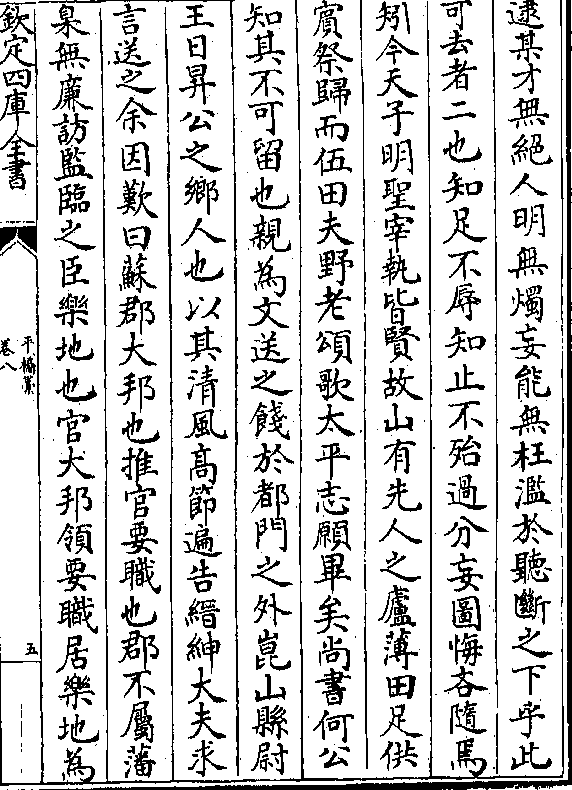 逮某才無絕人明無燭妄能無枉濫於聽斷之下乎此
可去者二也知足不辱知止不殆過分妄圖悔吝隨焉
矧今天子明聖宰執皆賢故山有先人之廬薄田足供
賔祭歸而伍田夫野老頌歌太平志願畢矣尚書何公
知其不可留也親為文送之餞於都門之外崑山縣尉
王日昇公之鄉人也以其清風高節遍告縉紳大夫求
言送之余因歎曰蘇郡大邦也推官要職也郡不屬藩
臬無廉訪監臨之臣樂地也官大邦領要職居樂地為
欽定四庫全書
平橋藁
卷八
五